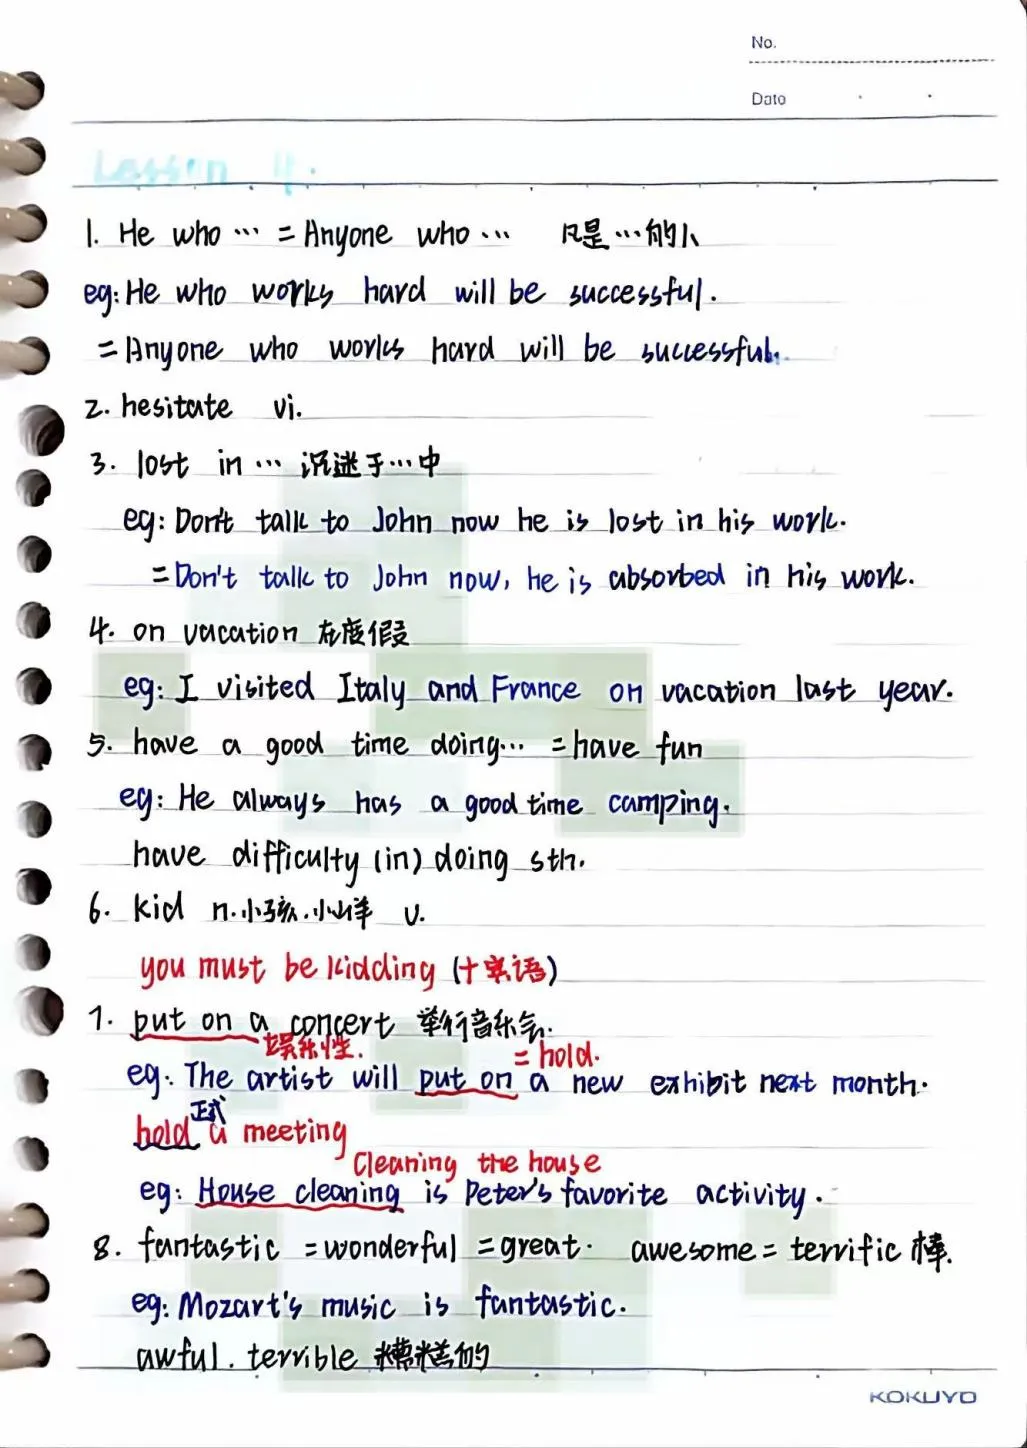 No.
Date
Lesson 4.
1. He who … = Anyone who … 凡是…的人
eg: He who works hard will be successful.
= Anyone who works hard will be successful.
2. hesitate vi.
3. lost in … 沉迷于…中
eg: Don't talk to John now he is lost in his work.
= Don't talk to John now, he is absorbed in his work.
4. on vacation 在度假
eg: I visited Italy and France on vacation last year.
5. have a good time doing… = have fun
eg: He always has a good time camping.
have difficulty (in) doing sth.
6. kid n. 小孩. 小山羊 v.
you must be kidding (十実语)
7. put on a concert 举行音乐会.
娱乐性. = hold.
eg: The artist will put on a new exhibit next month.
正式
hold a meeting
Cleaning the house
eg: House cleaning is Peter's favorite activity.
8. fantastic = wonderful = great. awesome = terrific 棒.
eg: Mozart's music is fantastic.
awful. terrible 糟糕的
KOKUYO